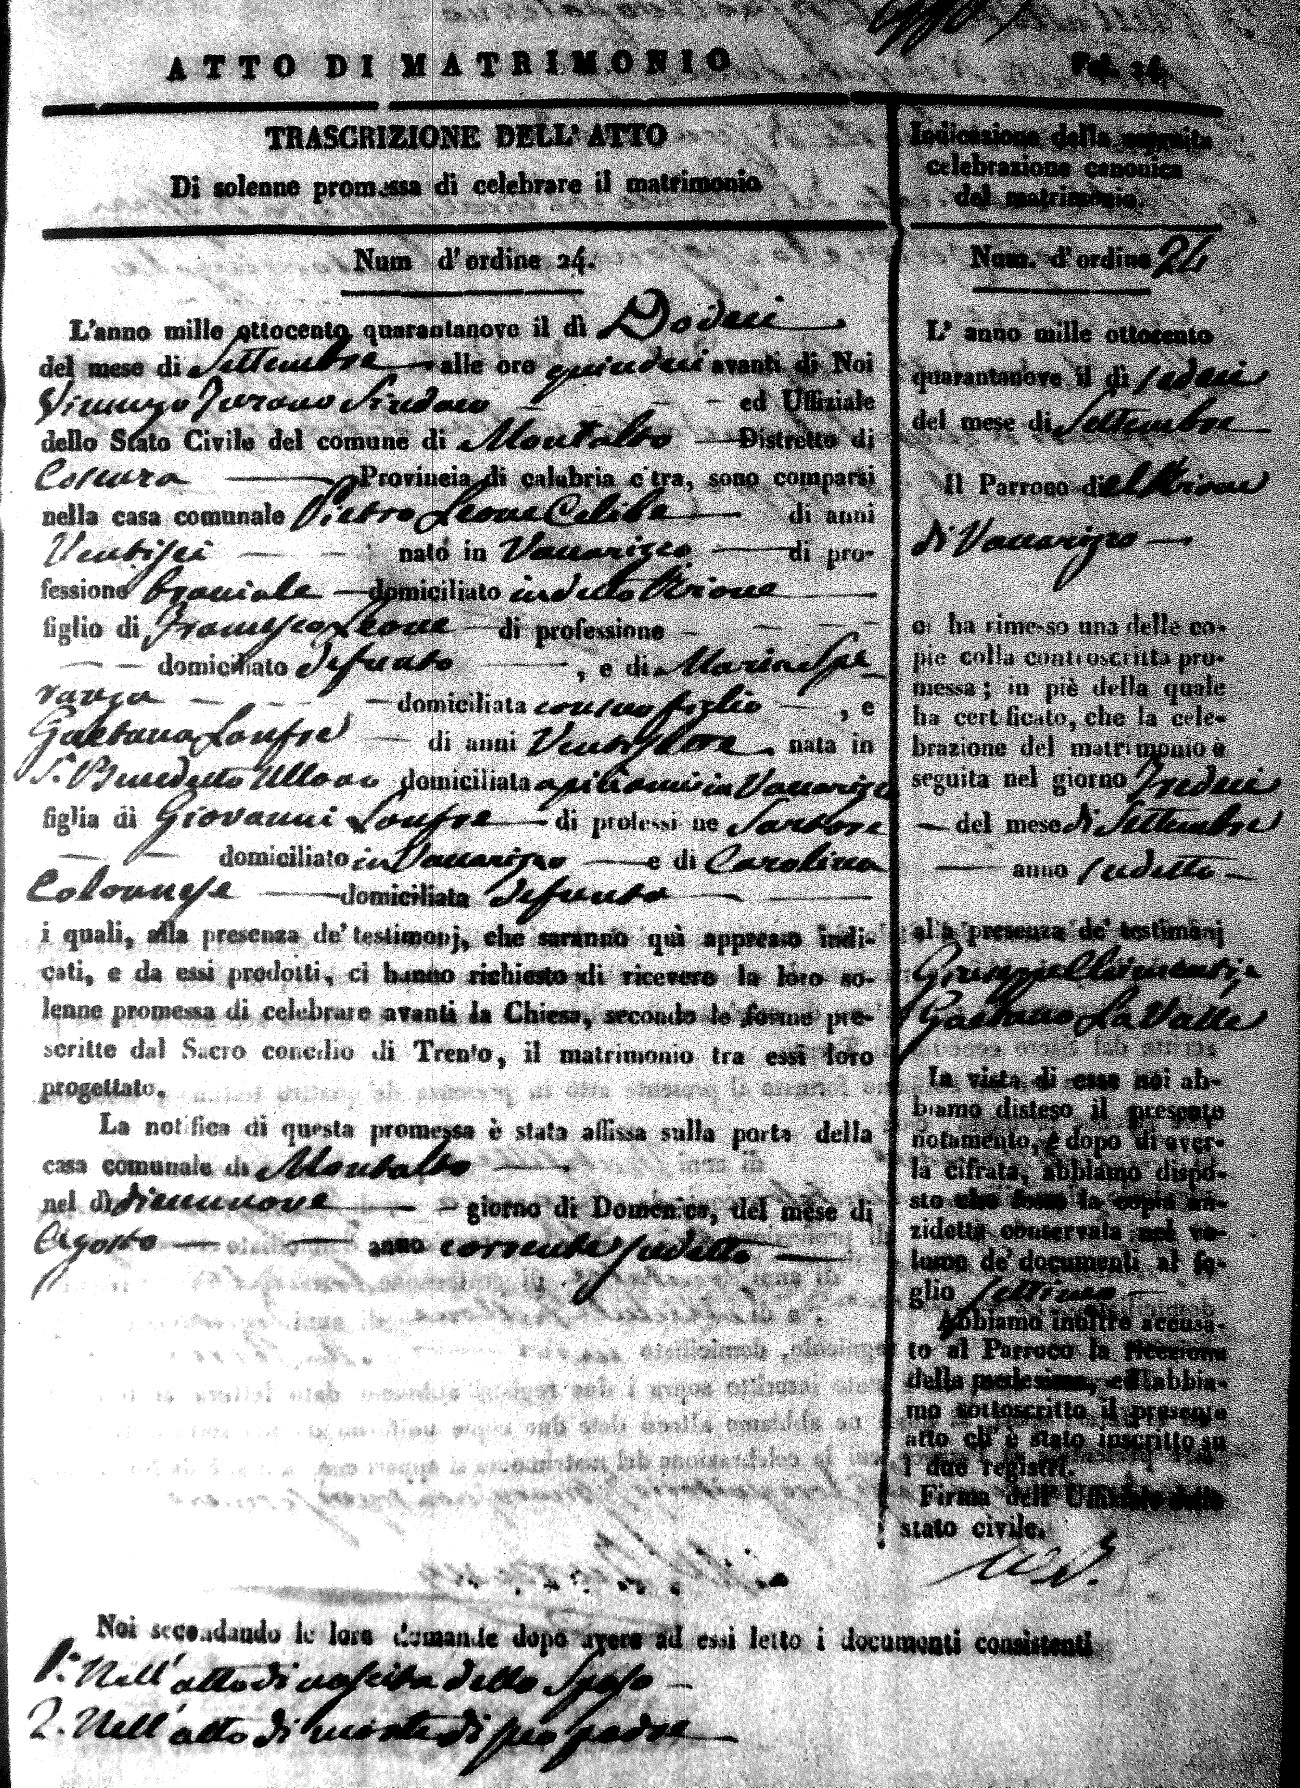 ATTO DI MATRIMONIO
Fol. 24.
TRASCRIZIONE DELL' ATTO
Di solenne promessa di celebrare il matrimonio
Num d'ordine 24.
L'anno mille ottocento quarantanove il dì Dodeci
del mese di Settembre alle ore quindeci avanti di Noi
Vincenzo Turano Sindaco ed Uffiziale
dello Stato Civile del comune di Montalto Distretto di
Cosenza Provincia di calabria citra, sono comparsi
nella casa comunale Pietro Leone Celibe di anni
Ventisei nato in Vaccarizzo di pro-
fessione braciale domiciliato in detto Rione
figlio di Francesco Leone di professione
domiciliato defunto , e di Maria Spe
ranza domiciliata con suo figlio , e
Gaetana di anni nata in
S. Benedetto Ullano domiciliata in Vaccarizzo
figlia di Giovanni di professione Sartore
domiciliato in Vaccarizzo e di Carolina
Colonnese domiciliata defunta
i quali, alla presenza de' testimonj, che saranno quì appresso indi-
cati, e da essi prodotti, ci hanno richiesto di ricevere la loro so-
lenne promessa di celebrare avanti la Chiesa, secondo le forme pre-
scritte dal Sacro concilio di Trento, il matrimonio tra essi loro
progettato.
La notifica di questa promessa è stata affissa sulla porta della
casa comunale di Montalto
nel dì diecinnove giorno di Domenica, del mese di
Agosto anno corrente sudetto
Indicazione della seguita
celebrazione canonica
del matrimonio.
Num. d'ordine 24
L' anno mille ottocento
quarantanove il dì sedeci
del mese di Settembre
Il Parroco del Rione
di Vaccarizzo
ci ha rimesso una delle co-
pie colla controscritta pro-
messa; in piè della quale
ha certificato, che la cele-
brazione del matrimonio è
seguita nel giorno Tredeci
del mese di Settembre
anno sudetto
alla presenza de' testimonj
Giuseppe
Gaetano La Valle
La vista di esse noi ab-
biamo disteso il presente
notamento, e dopo di aver-
la cifrata, abbiamo dispo-
sto che fosse la copia an-
zidetta conservata nel vo-
lume de' documenti al fo-
glio settimo
Abbiamo inoltre accusa-
to al Parroco la ricezione
della medesima, ed abbia-
mo sottoscritto il presente
atto ch' è stato inscritto su
i due registri.
Firma dell' Uffiziale dello
stato civile.
Noi secondando le loro domande dopo avere ad essi letto i documenti consistenti
1: Nell'atto di nascita dello Sposo
2. Nell'atto di morte di suo padre